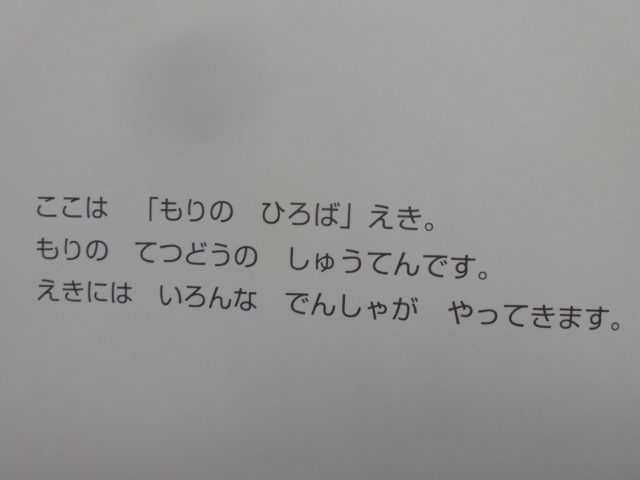 ここは　「もりの　ひろば」えき。
もりの　てつどうの　しゅうてんです。
えきには　いろんな　でんしゃが　やってきます。